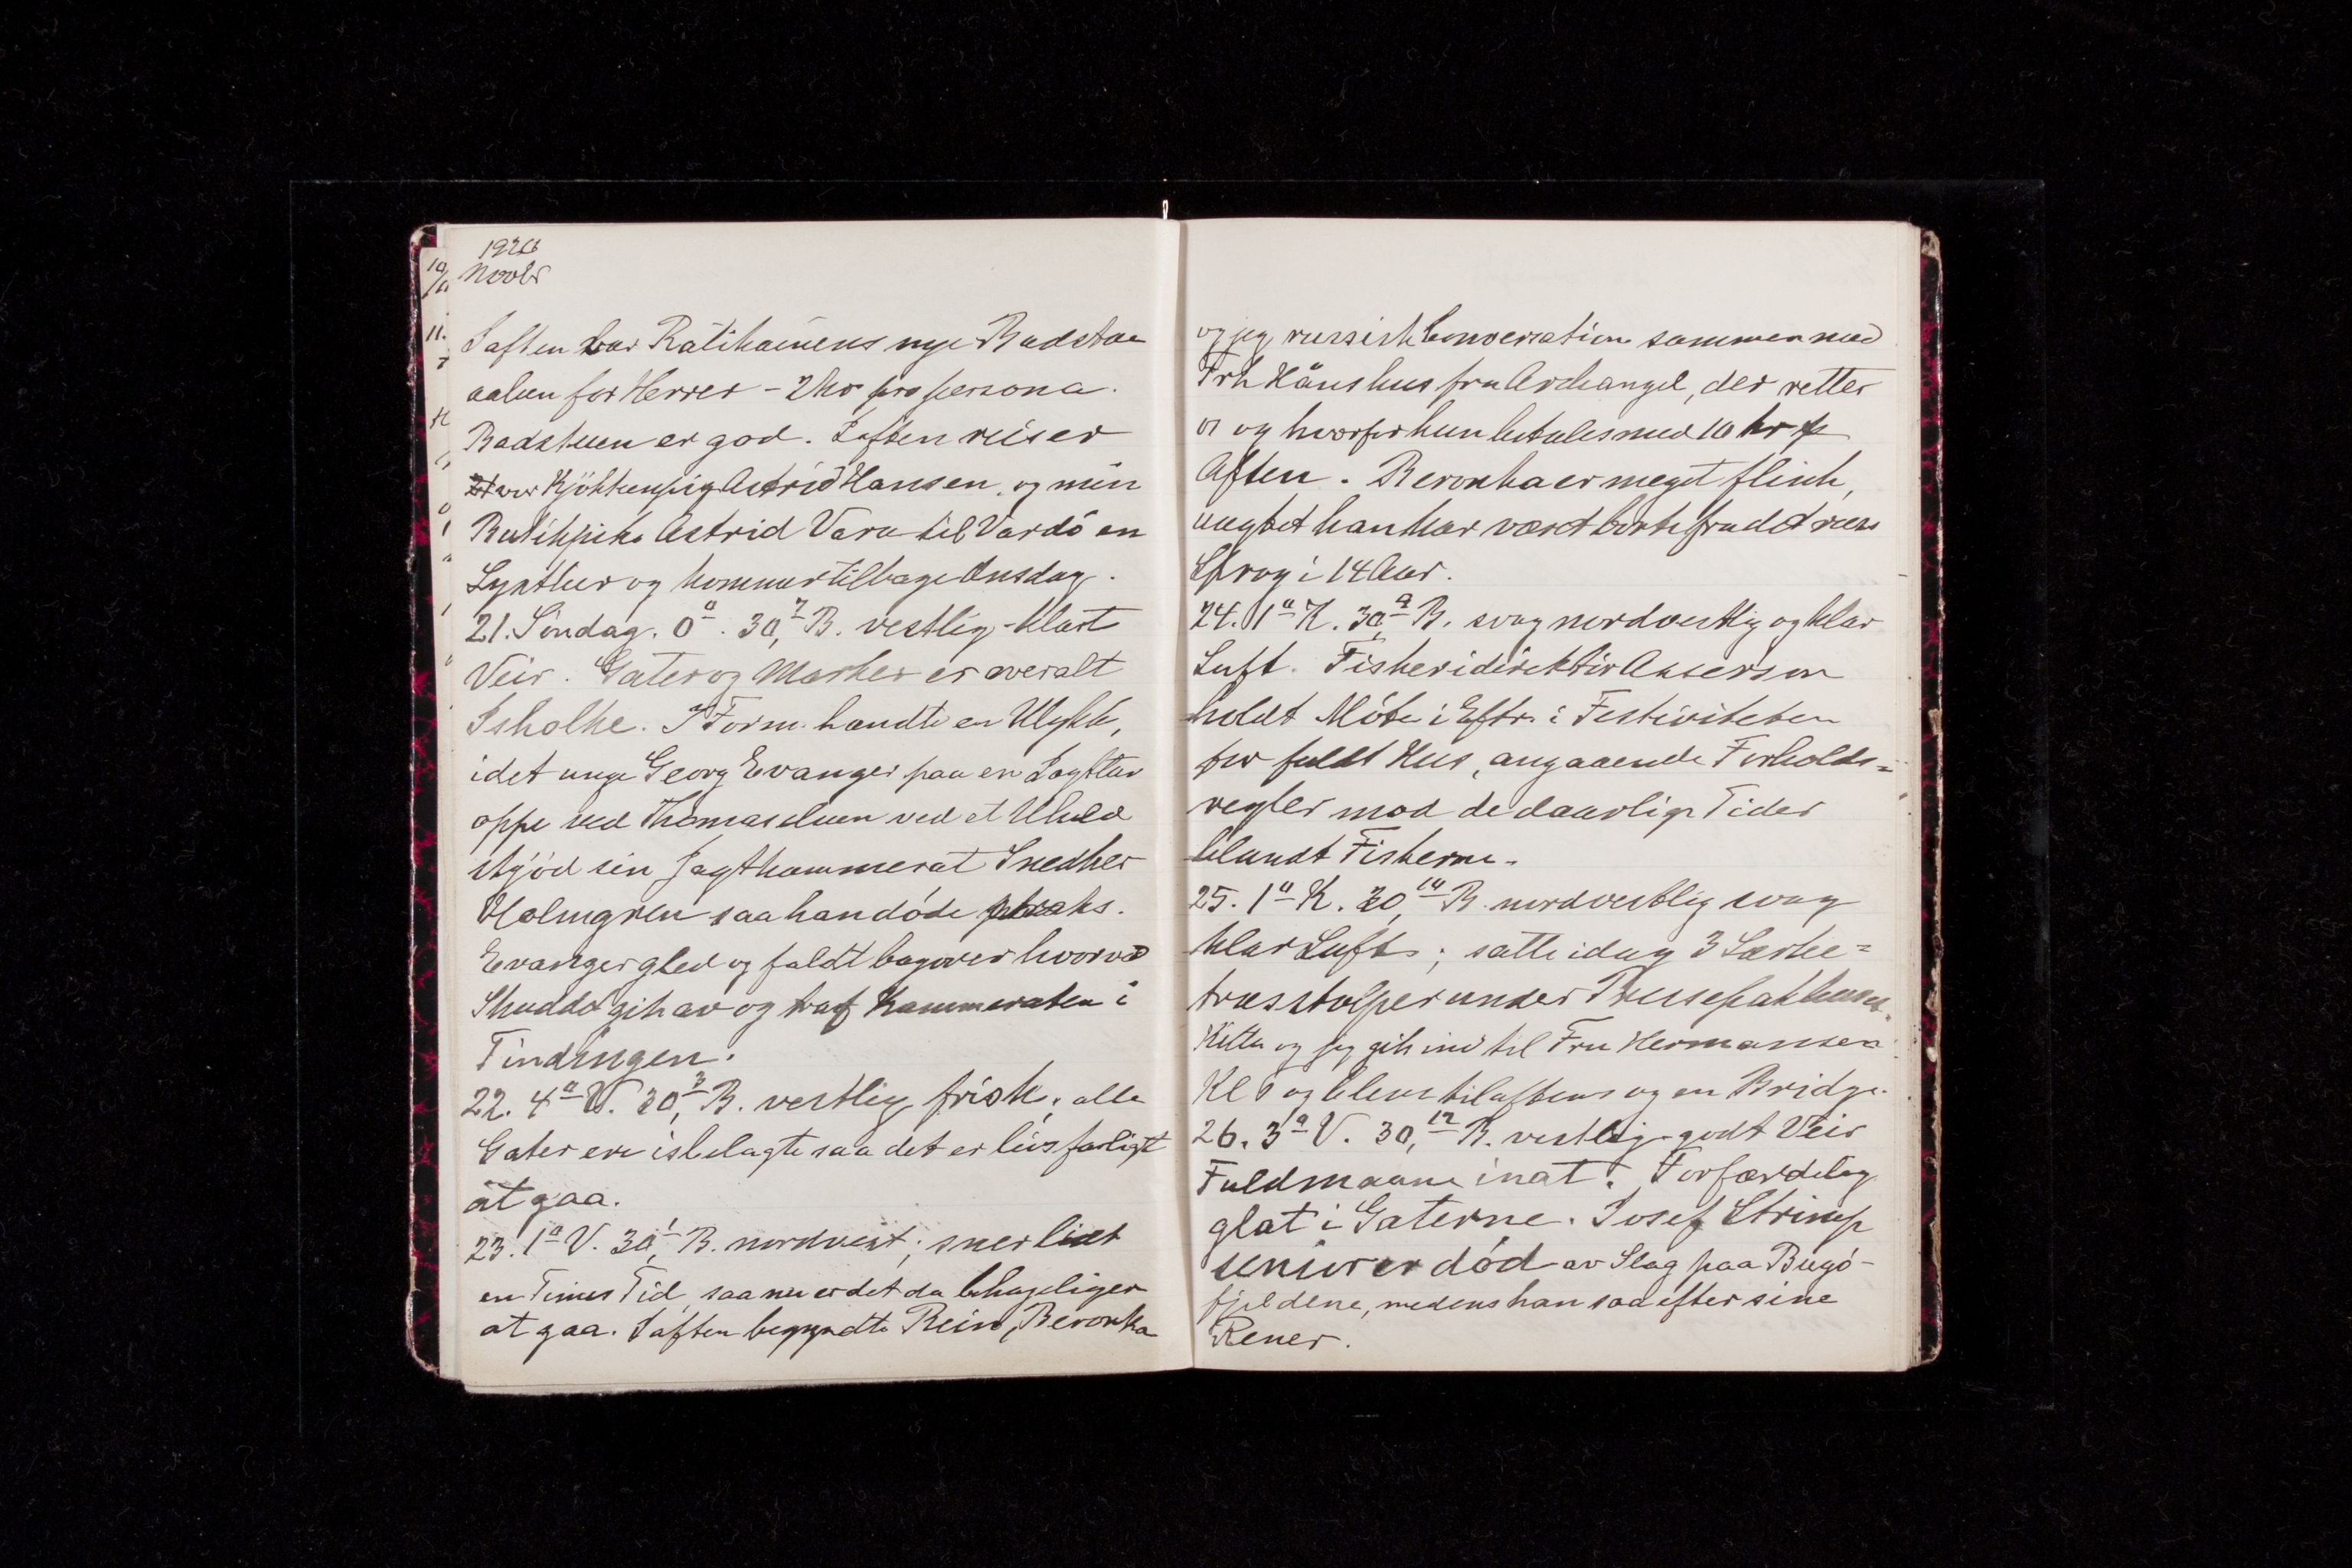 1920
Novbr
Iaften var Ratikainens nye Badstue
aaben for Herrer - 2 kr pro persona.
Badstuen er god. Iaften reiser
vor Kjökkenpig Astrid Hansen og min
Butikpike Astrid Vara til Vardö en
Lysttur og kommer tilbage Onsdag.
21. Söndag. 0°. 30,7 B. vestlig - klart
Veir. Gater og Marker er overalt
Isholke. I Form. hændte en Ulykke,
idet unge Georg Evanger paa en Jagttur
oppe ved Thomaselven ved et Uheld
skjöd sin Jagtkammerat Snedker
Holmgren saa han döde straks.
Evanger gled og faldt bagover hvorved
Skuddet gik av og traf Kammeraten i
Tindingen.
22. 4° V. 30,3 B. vestlig frisk; alle
Gater ere isbelagte saa det er livsfarligt
at gaa.
23. 1° V. 30,1 B. nordvest; sner lidt
en Times Tid saa nu er det da behageliger
at gaa. Iaften begyndte Rein, Beronka
og jeg russisk Conversation sammen med
Frk Hänshus fra Archangel, der retter
os og hvorfor hun betales med 10 kr p
Aften. Beronka er meget flink,
uagtet han har været borte fra det russ
Sprog i 14 Aar.
24. 1° K. 30,9 B. svag nordvestlig og klar
Luft. Fiskeridirektör Asserson
holdt Möte i Eftr. i Festiviteten
for fuldt Hus, angaaende Forholds=
regler mod de daarlige Tider
blandt Fiskerne.
25. 1° K. 30,10 B. nordvestlig svag
klar Luft; satte idag 3 Lærke=
træsstolper under Pakhuset.
Kitta og jeg gik ind til Fru Hermansen
Kl og blev til aftens og en Bridge.
26. 3° V. 30,12 B. vestlig - godt Veir
Fuldmaane inat. Forfærdelig
glat i Gaterne. Josef Strimp
senior er död av Slag paa Bugö-
fjeldene, medens han saa efter sine
Rener.